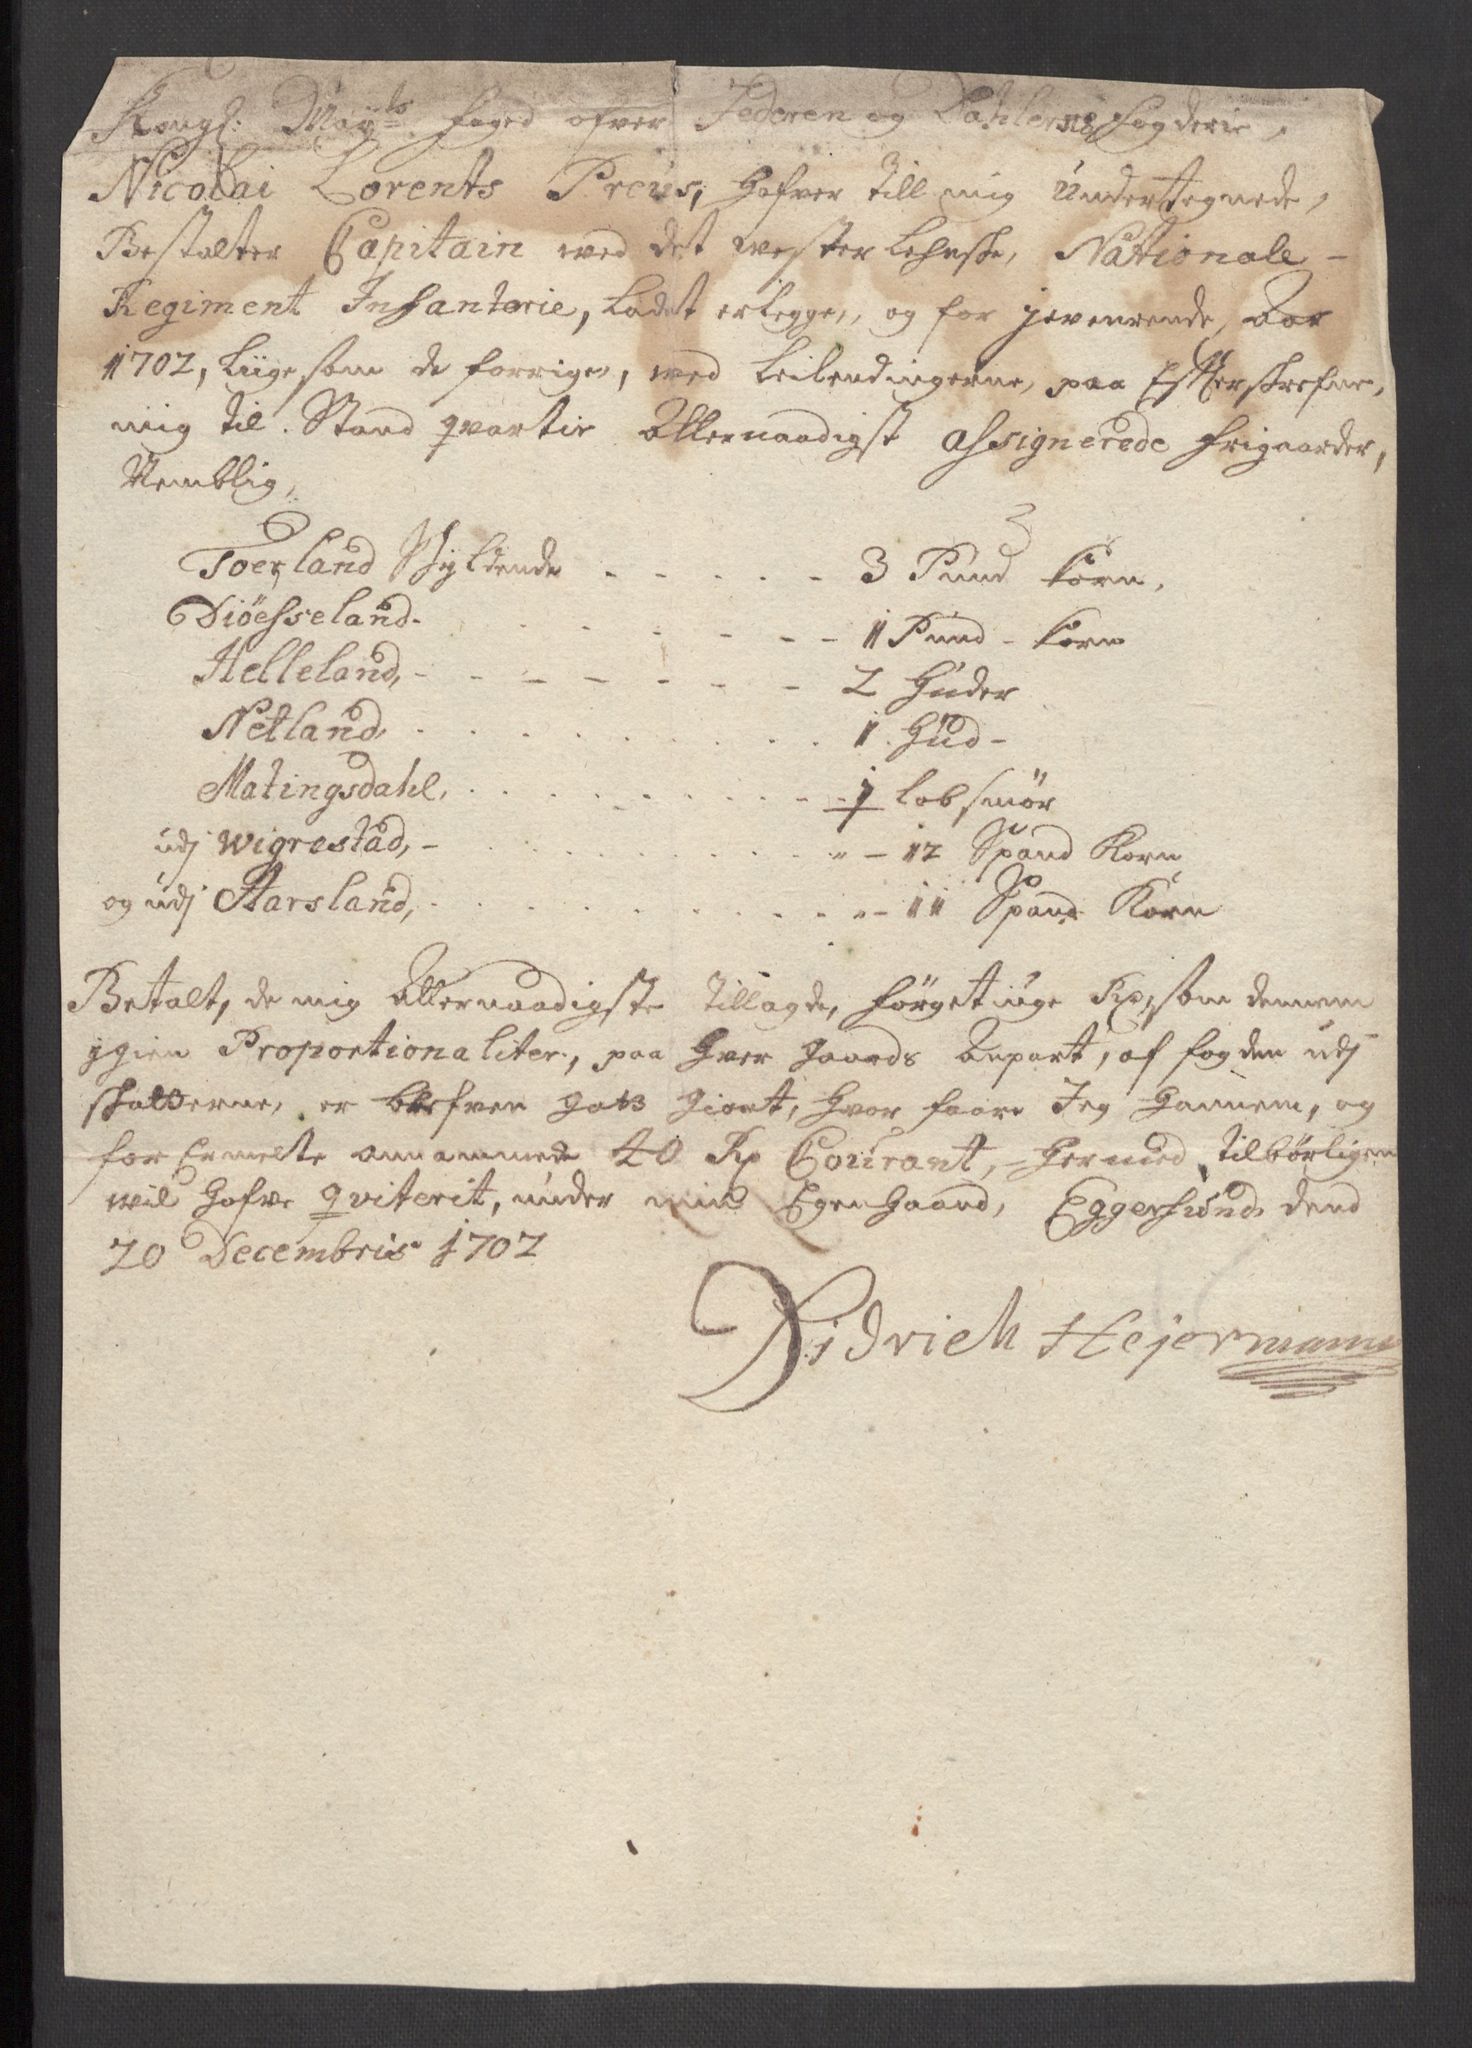 Kongl: May:ts foged ofver Jederen og Dahlerne fogderie,
Nicolai Lorents Preus, hafver till mig Undertegnede,
Bestalter Capitain wed det westerlehnske, Nationale-
Regiment Infanterie, ladet erlegge, og for jnverende Aar
1702, liige som de forrige, wed leilendingerne, paa Efterskrefne,
mig til Stand qvarteer allernaadigst assignerede frigaarder,
Nemblig,
Toerland Skyldende - - - - - 3 Pund korn,
Diöesseland - - - 1 Pund - korn
Helleland, - - - - - - - 2 Huder
Netland, . . . . . . 1 Hud -
Matingsdahl, . . . . . . 1 lob smör
udj Wigrestad, - . . . . . " - 12 Spand Korn
og udj Aarsland, . . . . . . " - 11 Spand Korn
Betalt, de mig allernaadigste tillagde, förgetiuge Rd, som dennem
jgien Proportionaliter, paa hver gaards anpart, af fogden udj
skatterne, er blefven godt giort, hvor faare Jeg hannem, og
for Ermelte annammede 40 Rd Courant, hermed tilbörligen
wil hafve qviterit, under min Egen haand, Eggersund dend
20 Decembris 1702
Didrich Hejermann